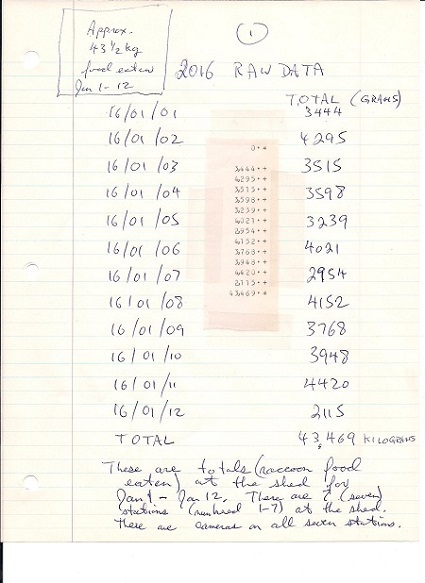 Approx.
43 1/2 kg
food eaten
Jan 1-12
1
2016 RAW DATA
TOTAL (GRAMS)
16/01/01 3444
16/01/02 4295
16/01/03 3515
16/01/04 3598
16/01/05 3239
16/01/06 4021
16/01/07 2954
16/01/08 4152
16/01/09 3768
16/01/10 3948
16/01/11 4420
16/01/12 2115
TOTAL 43,469 KILOGRAMS
0·+
3444·+
4295·+
3515·+
3598·+
3239·+
4021·+
2954·+
4152·+
3768·+
3948·+
4420·+
2115·+
43,469·+
These are totals (raccoon food
eaten) at the shed for
Jan 1 - Jan 12. There are 7 (seven)
stations (numbered 1-7) at the shed.
There are cameras on all seven stations.